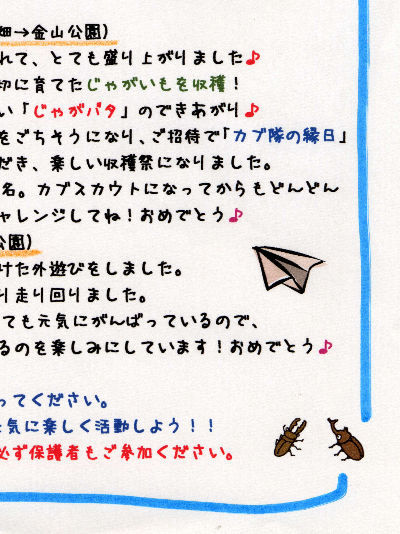 畑→金山公園)
れて、とても盛り上がりました♪
切に育てたじゃがいもを収穫!
い「じゃがバタ」のできあがり♪
をごちそうになり、ご招待で「カブ隊の縁日」
だき、楽しい収穫祭になりました。
名。カブスカウトになってからもどんどん
ャレンジしてね!おめでとう♪
公園)
けた外遊びをしました。
り走り回りました。
ても元気にがんばっているので、
るのを楽しみにしています!おめでとう♪
ってください。
元気に楽しく活動しよう!!
必ず保護者もご参加ください。